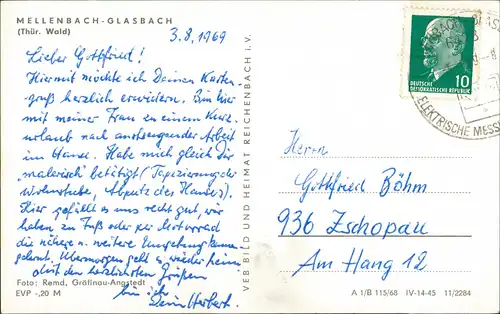 MELLENBACH-GLASBACH
(Thür. Wald)
3.8.1969
Lieber Gottfried!
Hiermit möchte ich Deinen Karten-
gruß herzlich erwidern. Bin hier
mit meiner Frau zu einem Kurz-
urlaub nach anstrengender Arbeit
im Hause. Habe mich gleich für
"malerisch" betätigt (Tapezierung der
Wohnstube, Abputz des Hauses).
Hier gefällt es uns recht gut, wir
haben zu Fuß oder per Motorrad
die nähere u. weitere Umgebung kennen-
gelernt. Übermorgen geht es wieder heim.
Mit den herzlichsten Grüßen
bin ich
Dein Herbert.
Foto: Remd, Gräfinau-Angstedt
EVP -,20 M
VEB BILD UND HEIMAT REICHENBACH I. V.
10
DEUTSCHE
DEMOKRATISCHE REPUBLIK
ELEKTRISCHE MESS
Herrn
Gottfried Böhm
936 Zschopau
Am Hang 12
A 1/B 115/68 IV-14-45 11/2284